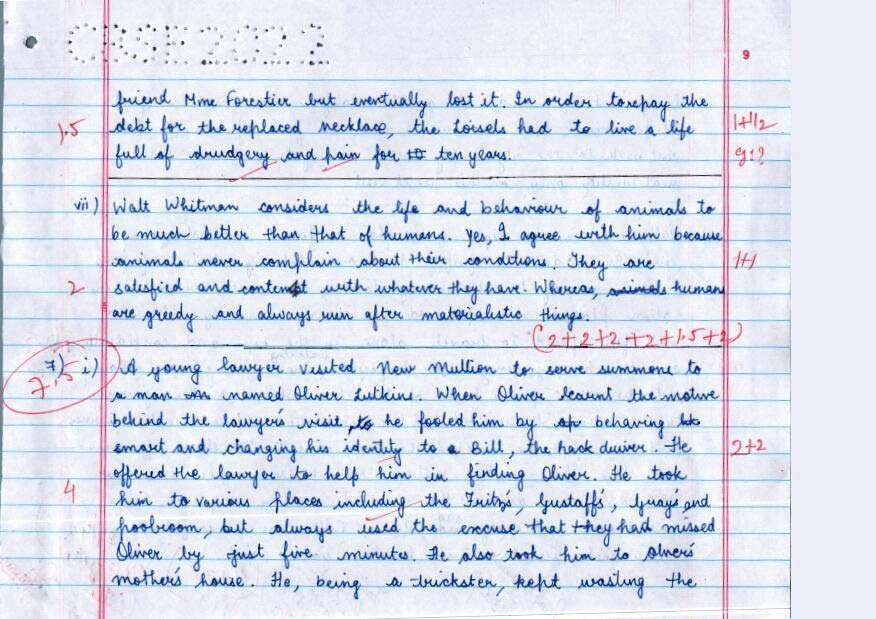 CBSE2022
9
friend Mme Forestier but eventually lost it. In order to repay the
1.5 debt for the replaced necklace, the Loisels had to live a life 1+1/2
full of drudgery and pain for to ten years.
vii) Walt Whitman considers the life and behaviour of animals to
be much better than that of humans. Yes, I agree with him because
animals never complain about their conditions. They are 1+1
2 satisfied and content with whatever they have. Whereas, animals humans
are greedy and always run after materialistic things.
(2+2+2+2+1.5+2)
7.5 7) i) A young lawyer visited New Mullion to serve summons to
a man named Oliver Lutkins. When Oliver learnt the motive
behind the lawyer's visit, to he fooled him by ap behaving
smart and changing his identity to a Bill, the hack driver. He 2+2
offered the lawyer to help him in finding Oliver. He took
4 him to various places including the Fritz's, Gustaff's, Gray's and
poolroom, but always used the excuse that they had missed
Oliver by just five minutes. He also took him to Oliver's
mother's house. He, being a trickster, kept wasting the